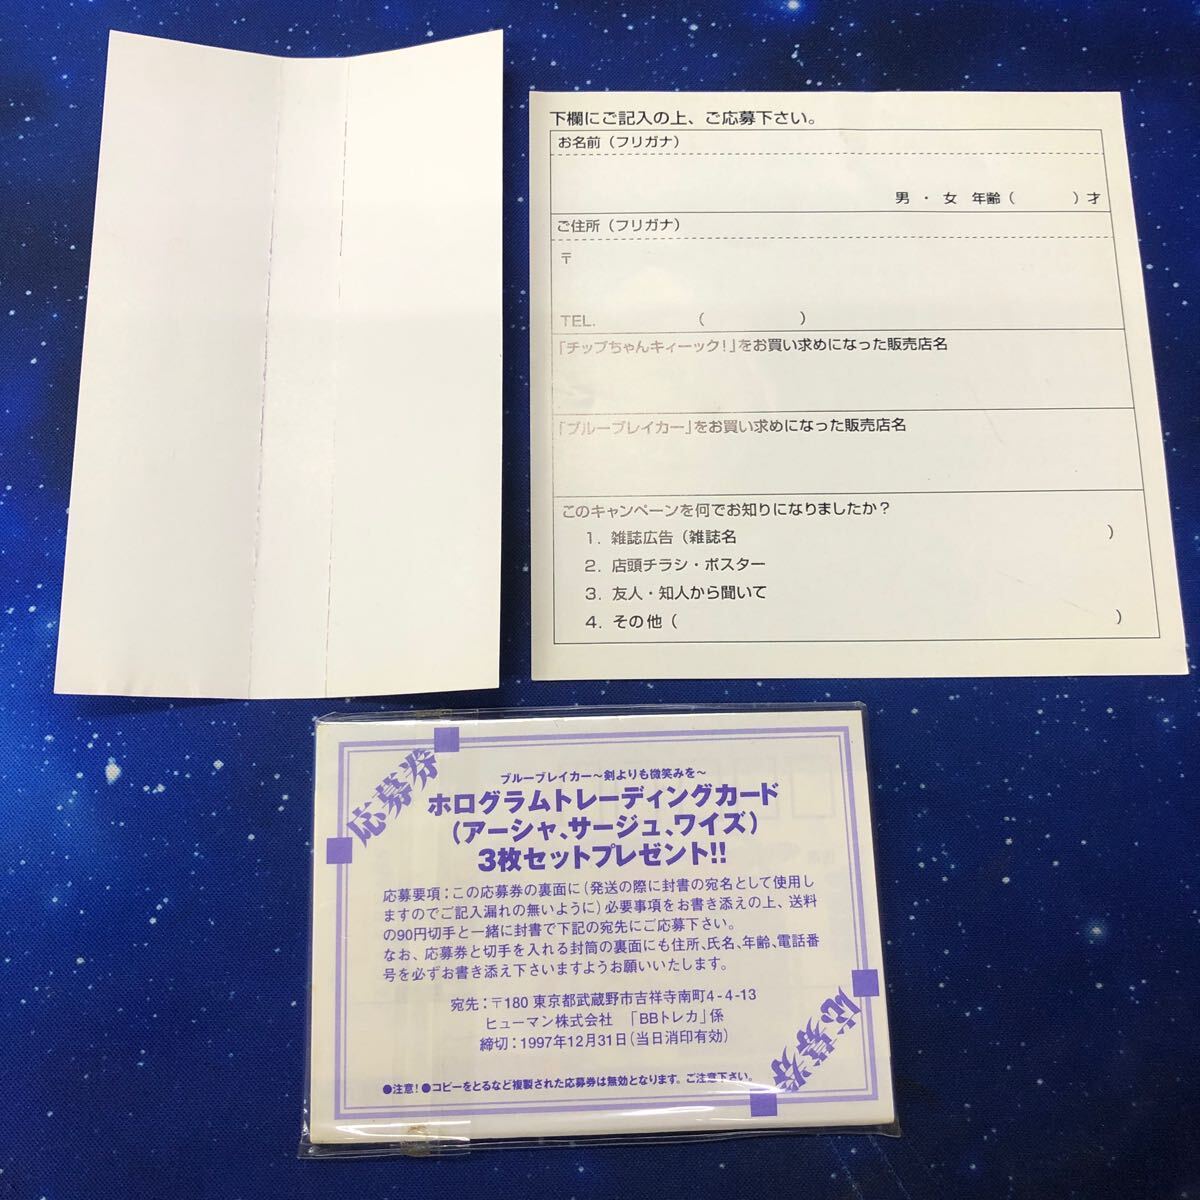 下欄にご記入の上、ご応募下さい。
お名前(フリガナ)
男 ・ 女 年齢( )才
ご住所(フリガナ)
〒
TEL. ( )
「チップちゃんキィーック!」をお買い求めになった販売店名
「ブルーブレイカー」をお買い求めになった販売店名
このキャンペーンを何でお知りになりましたか?
1. 雑誌広告(雑誌名 )
2. 店頭チラシ・ポスター
3. 友人・知人から聞いて
4. その他( )
応募券
ブルーブレイカー〜剣よりも微笑みを〜
ホログラムトレーディングカード
(アーシャ、サージュ、ワイズ)
3枚セットプレゼント!!
応募要項:この応募券の裏面に(発送の際に封書の宛名として使用し
ますのでご記入漏れの無いように)必要事項をお書き添えの上、送料
の90円切手と一緒に封書で下記の宛先にご応募下さい。
なお、応募券と切手を入れる封筒の裏面にも住所、氏名、年齢、電話番
号を必ずお書き添え下さいますようお願いいたします。
宛先:〒180 東京都武蔵野市吉祥寺南町4-4-13
ヒューマン株式会社 「BBトレカ」係
締切:1997年12月31日(当日消印有効)
●注意!●コピーをとるなど複製された応募券は無効となります。ご注意下さい。
応募券